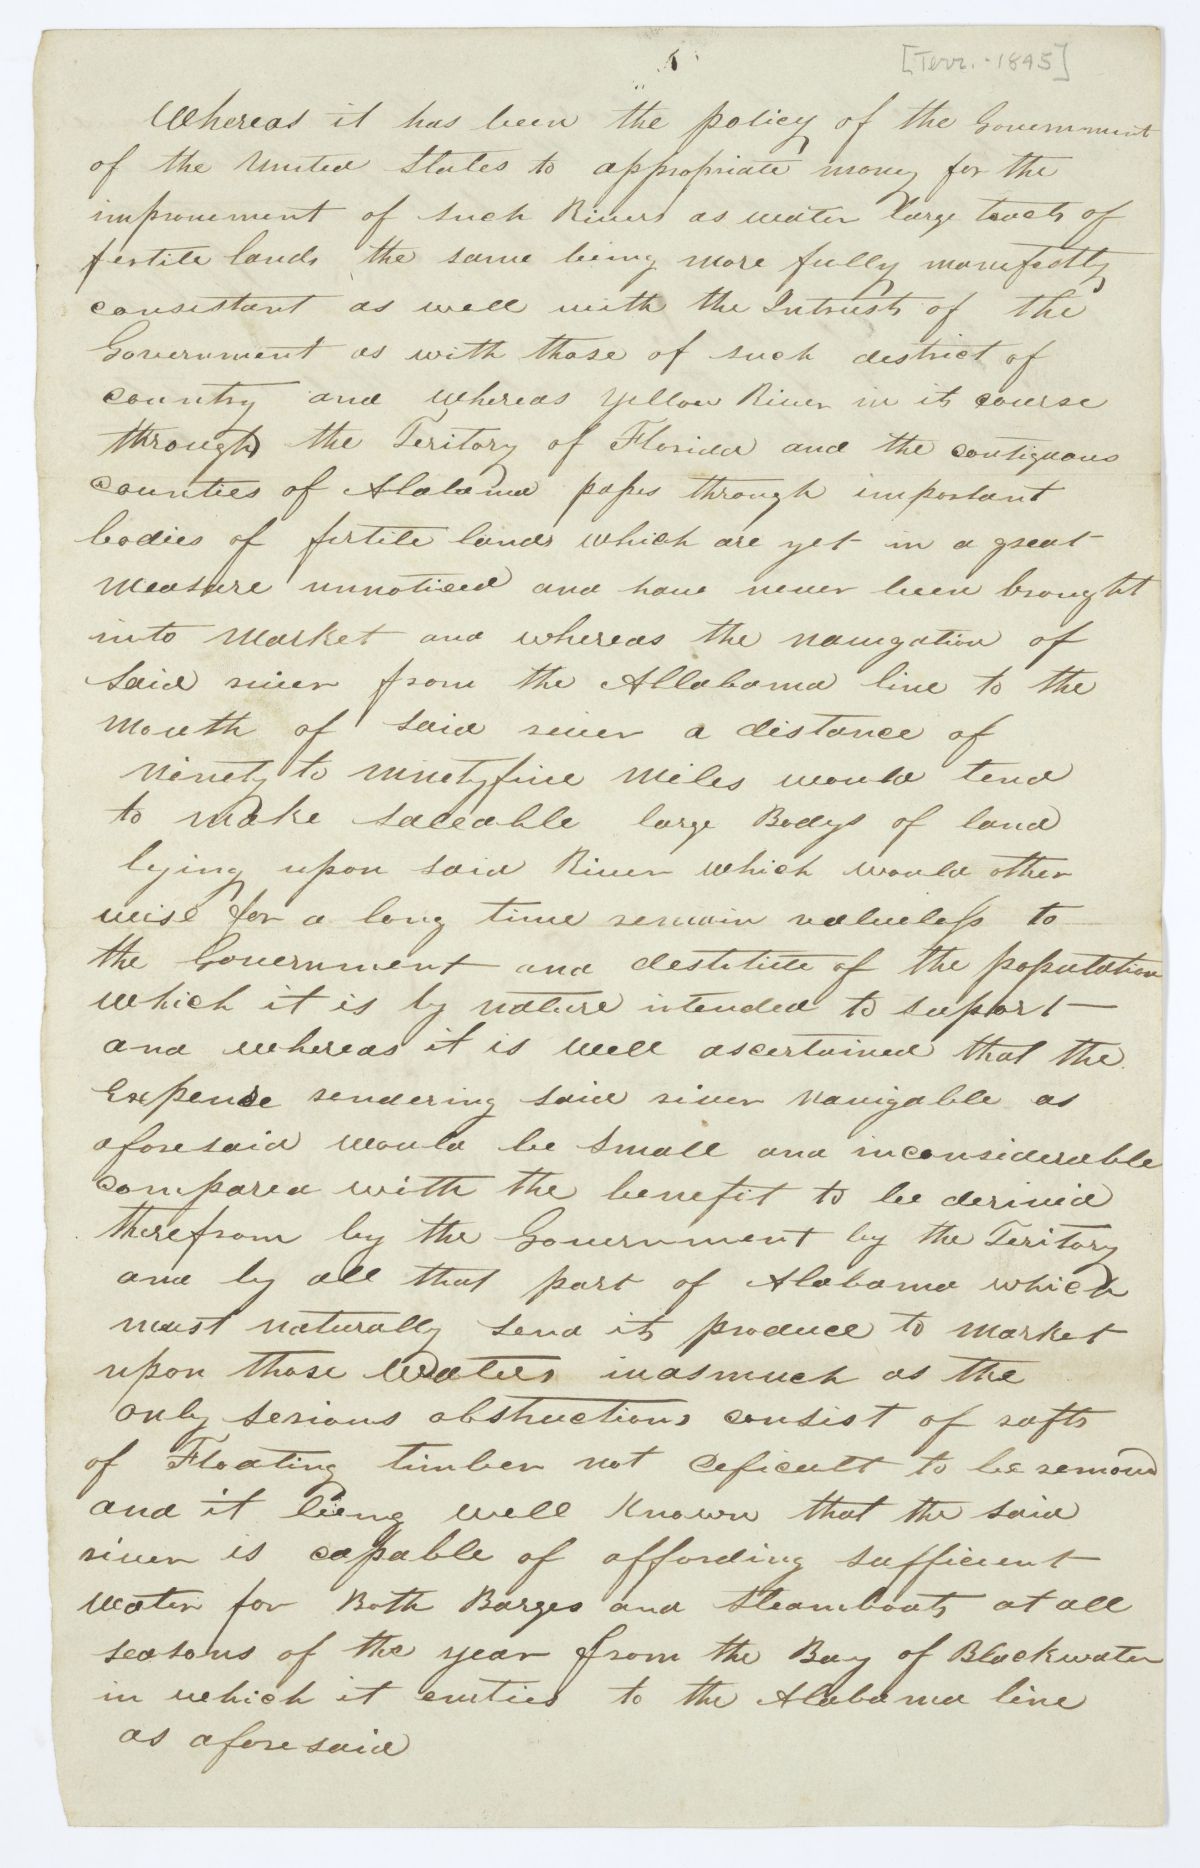 [Terr. - 1845]
Whereas it has been the policy of the Government
of the United States to appropriate money for the
improvement of such Rivers as water large tracts of
fertile lands the same being more fully manifestly
consistant as well with the Intrusts of the
Government as with those of such district of
country and whereas Yellow River in its course
through the Teritory of Florida and the contiguous
counties of Alabama passes through important
bodies of fertile lands which are yet in a great
measure unnoticed and have never been brought
into market and whereas the navigation of
said river from the Allabama line to the
mouth of said river a distance of
ninety to ninetyfive miles would tend
to make saleable large Bodys of land
lying upon said River which would other
wise for a long time remain valueless to
the Government and destitute of the population
which it is by nature intended to support
and whereas it is well ascertained that the
Expense rendering said river navigable as
aforesaid would be small and inconsiderable
compared with the benefit to be derived
therefrom by the Government by the Teritory
and by all that part of Alabama which
must naturally send its produce to market
upon those Waters inasmuch as the
only serious obstructions consist of rafts
of Floating timber not deficult to be removd
and it being well known that the said
river is capable of affording sufficient
water for Both Barges and Steamboats at all
seasons of the year from the Bay of Blackwater
in which it emties to the Alabama line
as aforesaid